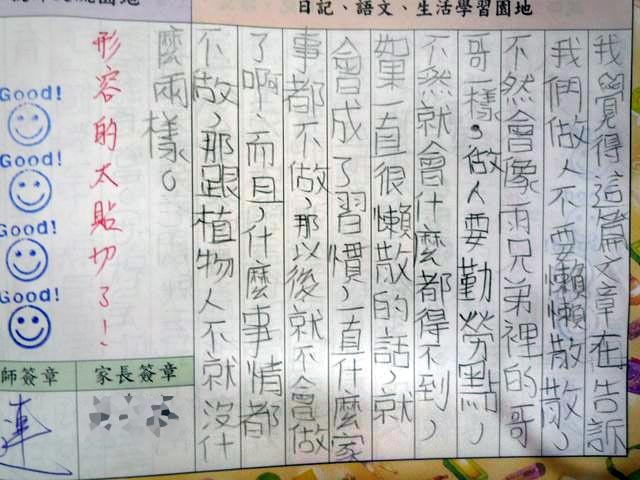 日記、語文、生活學習園地
我覺得這篇文章在告訴
我們做人不要懶懶散散，
不然會像兩兄弟裡的哥
哥一樣。做人要勤勞點，
不然就會什麼都得不到，
如果一直很懶散的話，就
會成了習慣，一直什麼家
事都不做，那以後就不會做
了啊，而且，什麼事情都
不做，那跟植物人不就沒什
麼兩樣。
形容的太貼切了！
Good!
Good!
Good!
Good!
家長簽章
師簽章
連